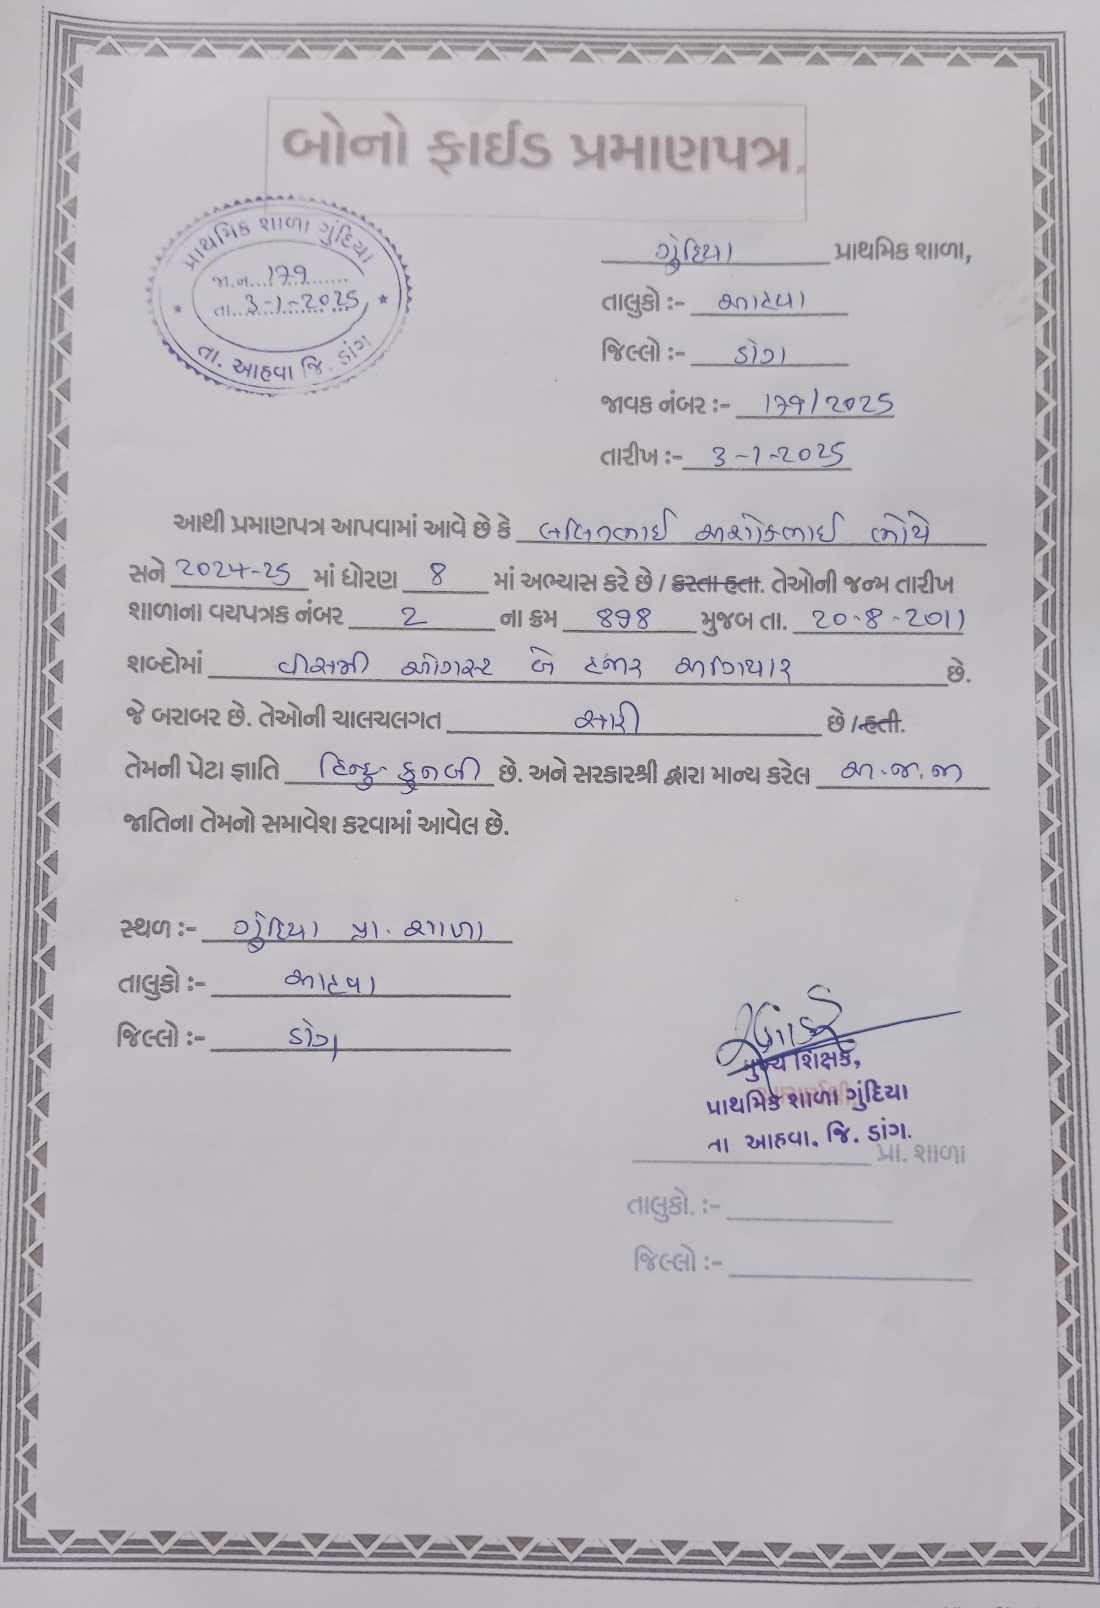 બોનો ફાઈડ પ્રમાણપત્ર.
પ્રાથમિક શાળા ગુંદિયા
જા.ન... ૧૭૧
તા... 3-1-2025
તા. આહવા જિ. ડાંગ
ગુંદિયા પ્રાથમિક શાળા,
તાલુકો :- આહવા
જિલ્લો :- ડાંગ
જાવક નંબર :- ૧૭૧/2025
તારીખ :- 3-1-2025
આથી પ્રમાણપત્ર આપવામાં આવે છે કે લલિતભાઈ અશોકભાઈ ભોયે
સને 2024-25 માં ધોરણ 8 માં અભ્યાસ કરે છે / કરતા હતા. તેઓની જન્મ તારીખ
શાળાના વયપત્રક નંબર 2 ના ક્રમ મુજબ તા. 20-8-2011
શબ્દોમાં વીસમી ઓગસ્ટ બે હજાર અગિયાર છે.
જે બરાબર છે. તેઓની ચાલચલગત સારી છે / હતી.
તેમની પેટા જ્ઞાતિ હિન્દુ કુનબી છે. અને સરકારશ્રી દ્વારા માન્ય કરેલ અ.જ.જા
જાતિના તેમનો સમાવેશ કરવામાં આવેલ છે.
સ્થળ :- ગુંદિયા પ્રા. શાળા
તાલુકો :- આહવા
જિલ્લો :- ડાંગ
મુખ્ય શિક્ષક,
પ્રાથમિક શાળા ગુંદિયા
તા આહવા. જિ. ડાંગ.
પ્રા. શાળા
તાલુકો. :-
જિલ્લો :-